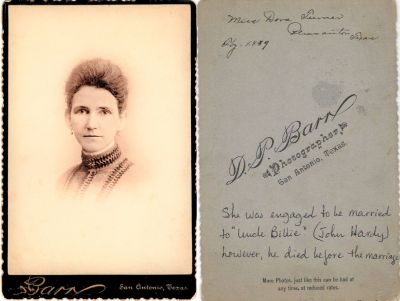 Barr
San Antonio, Texas
Miss Dora Turner
Pleasanton, Texas
1889
D. P. Barr
Photographer,
San Antonio, Texas.
She was engaged to be married
to "Uncle Billie" (John Hardy)
however, he died before the marriage
More Photos, just like this can be had at
any time, at reduced rates.